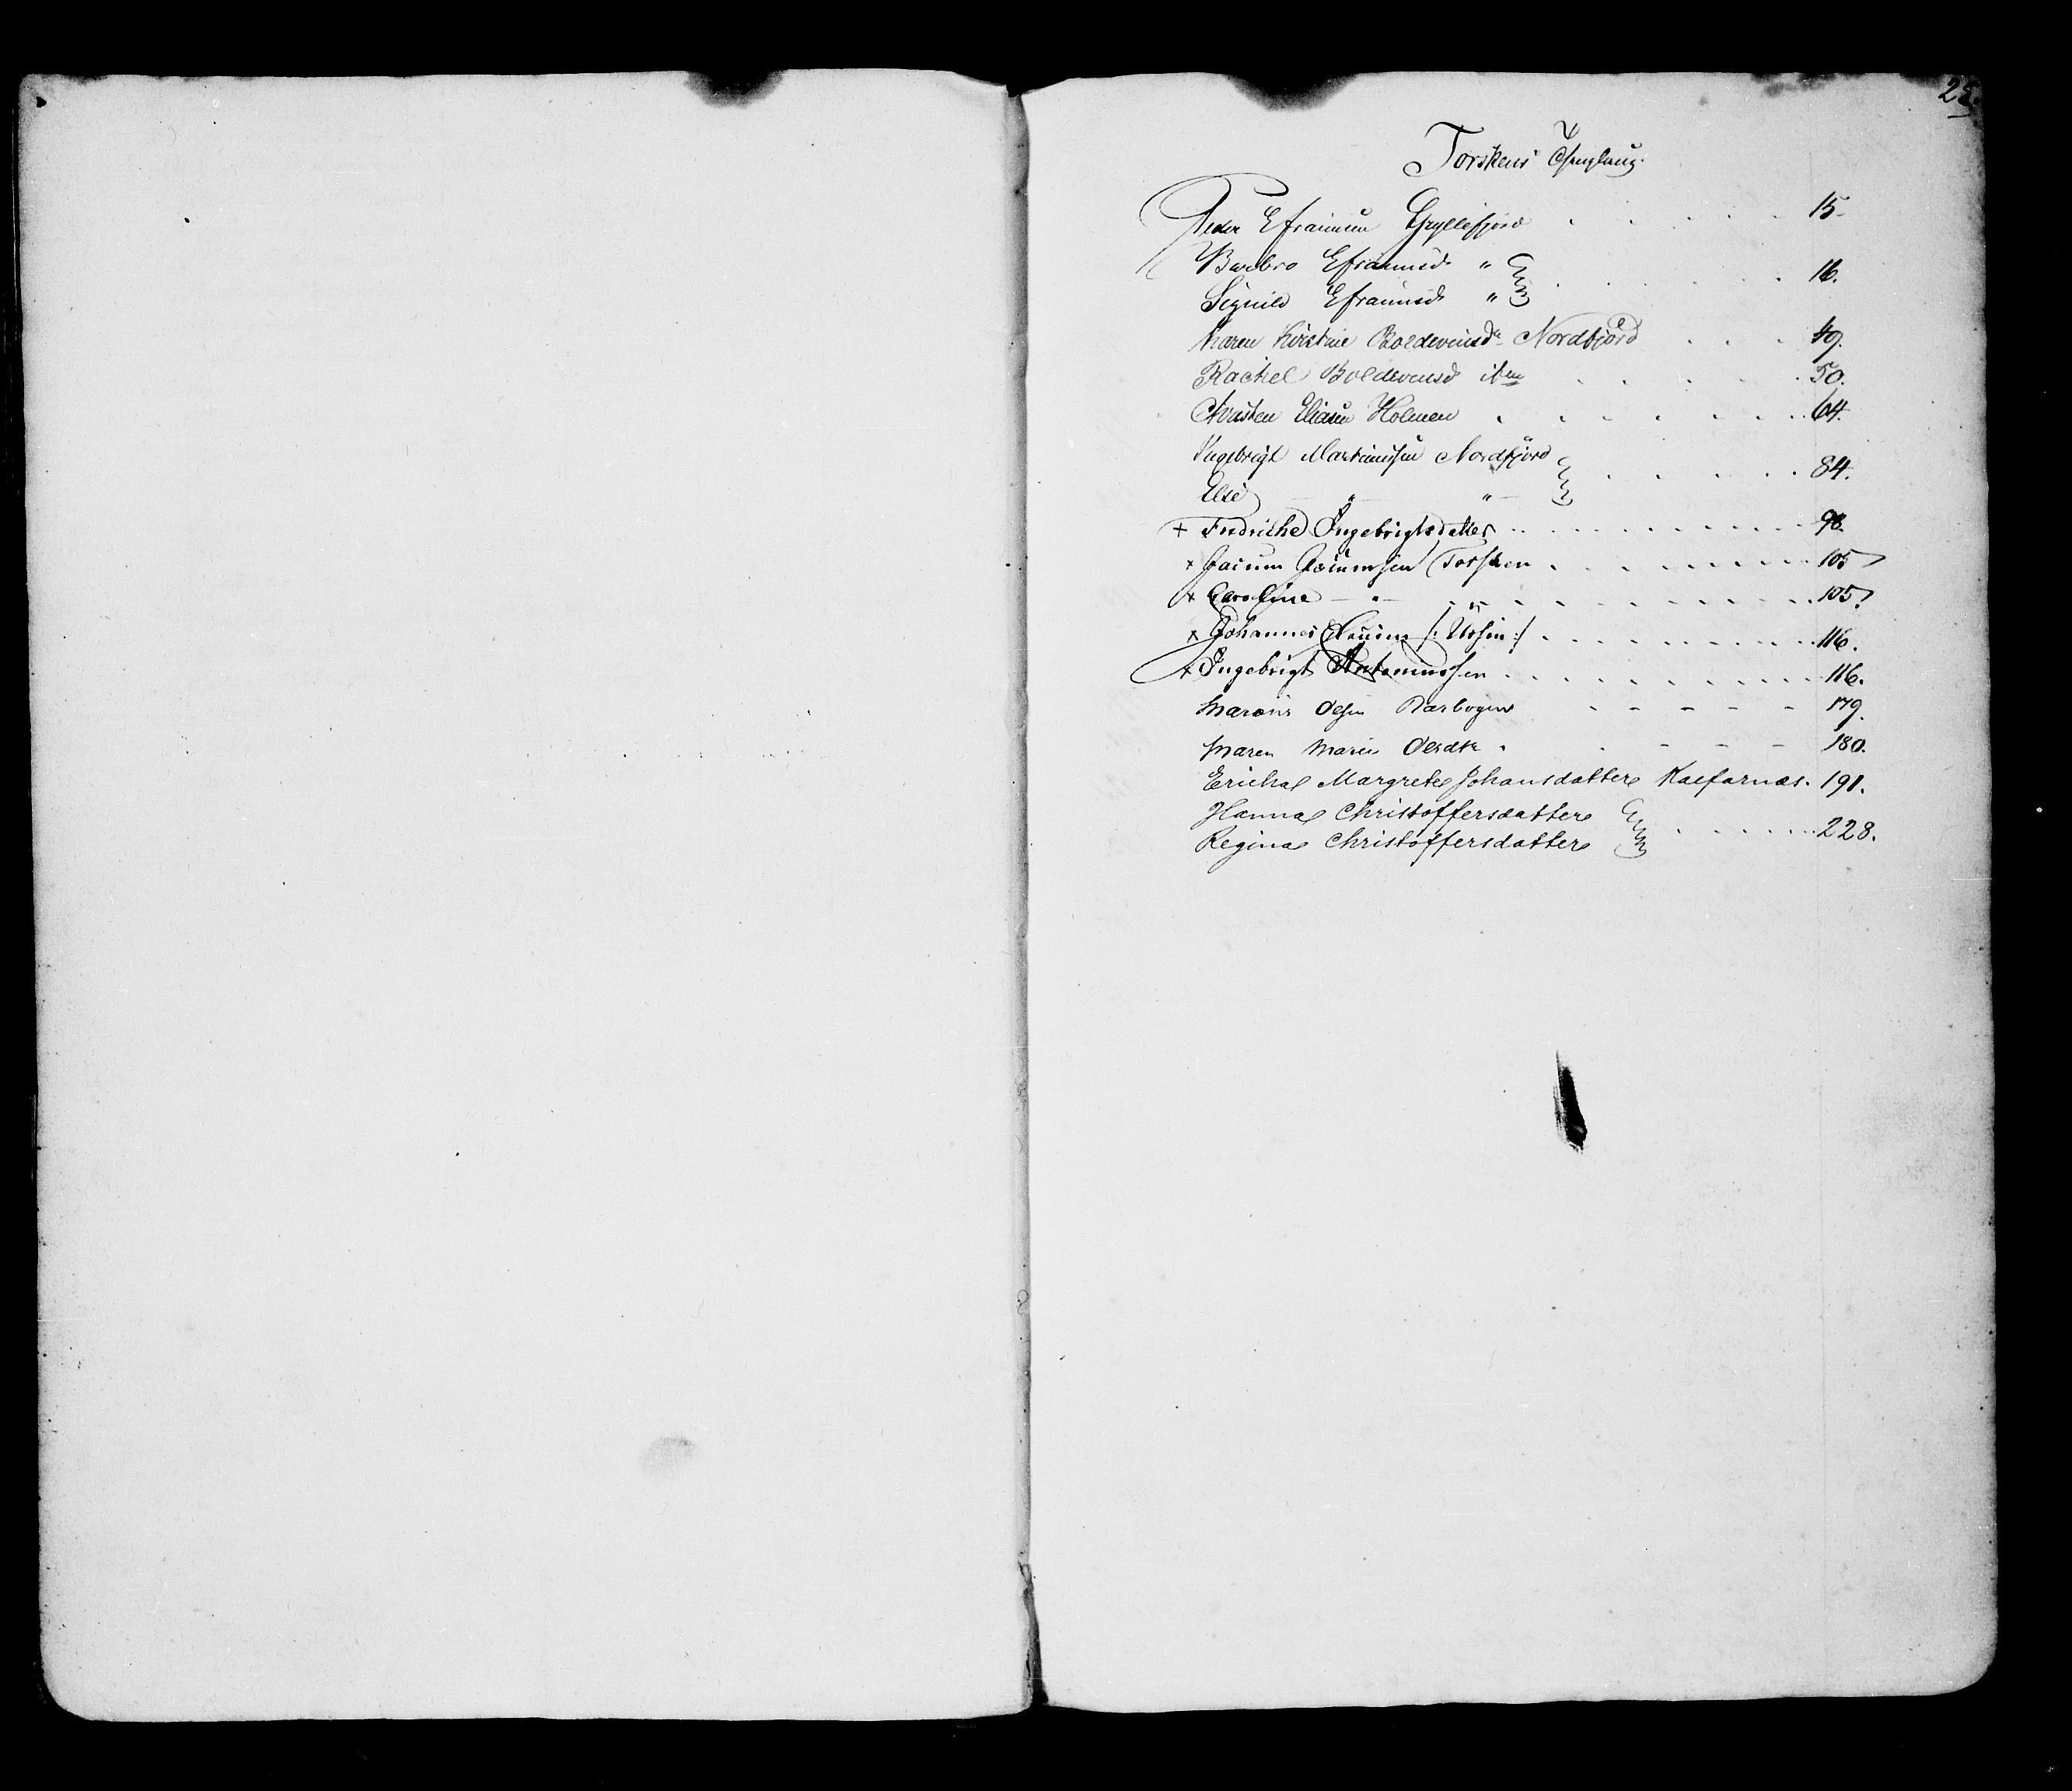 25.
Torskens Thinglaug.
Peder Efraimsen Gryllefjord . . . . . . 15
Barbro Efraimsd "
Signild Efraimsd " . . . . . . 16.
Karen Kirstine Boldevinsdr Nordfjord . . . 49.
Rachel Boldevinsd item . . . . . 50.
Christen Eliasen Holmen . . . . . . . 64.
Ingebrigt Martinussen Nordfjord
Else — " — " — . . . . . 84.
+ Fredrikke Ingebrigtsdatter . . . . . . . . 98.
+ Joisum Torsken . . . . . . . . 105
+ Caroline — " — " . . . . . . . 105.
+ Johannes /: Ursin :/ . . . . . . . . 116.
+ Ingebrigt Antoniussen . . . . . . . . 116.
Marius Olsen - - - - - 179.
Maren Marie Olsdtr " - - - - 180.
Ericha Margrete Johansdatter Kalfarnæs. 191.
Hanna Christoffersdatter
Regina Christoffersdatter . . . . . . . 228.